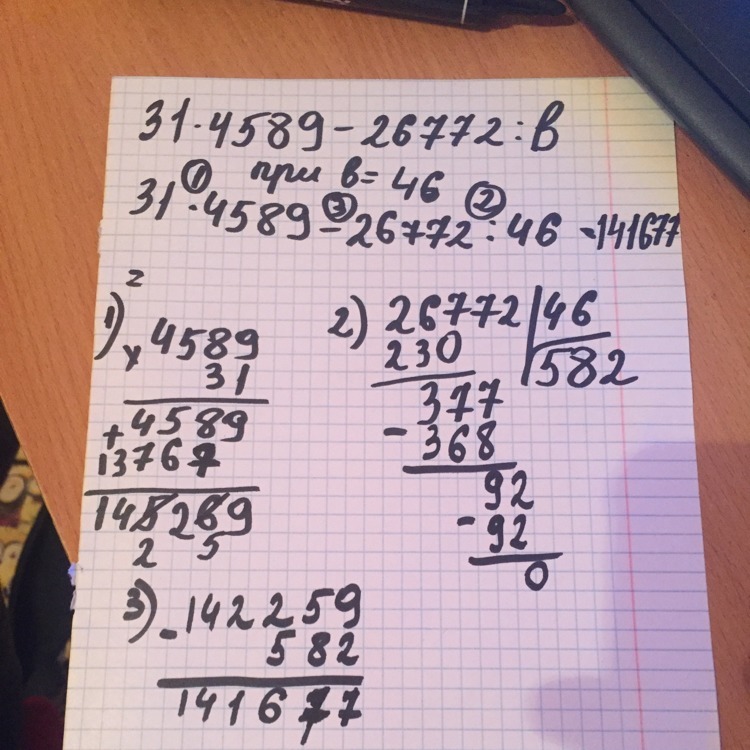 31·4589-26772:в
при в=46
31·4589-26772:46=141677
① ③ ②
1)
2
× 4589
31
+ 4589
13767
148269
2 5
2) 26772 | 46
230 | 582
377
- 368
92
- 92
0
3) - 142259
582
141677